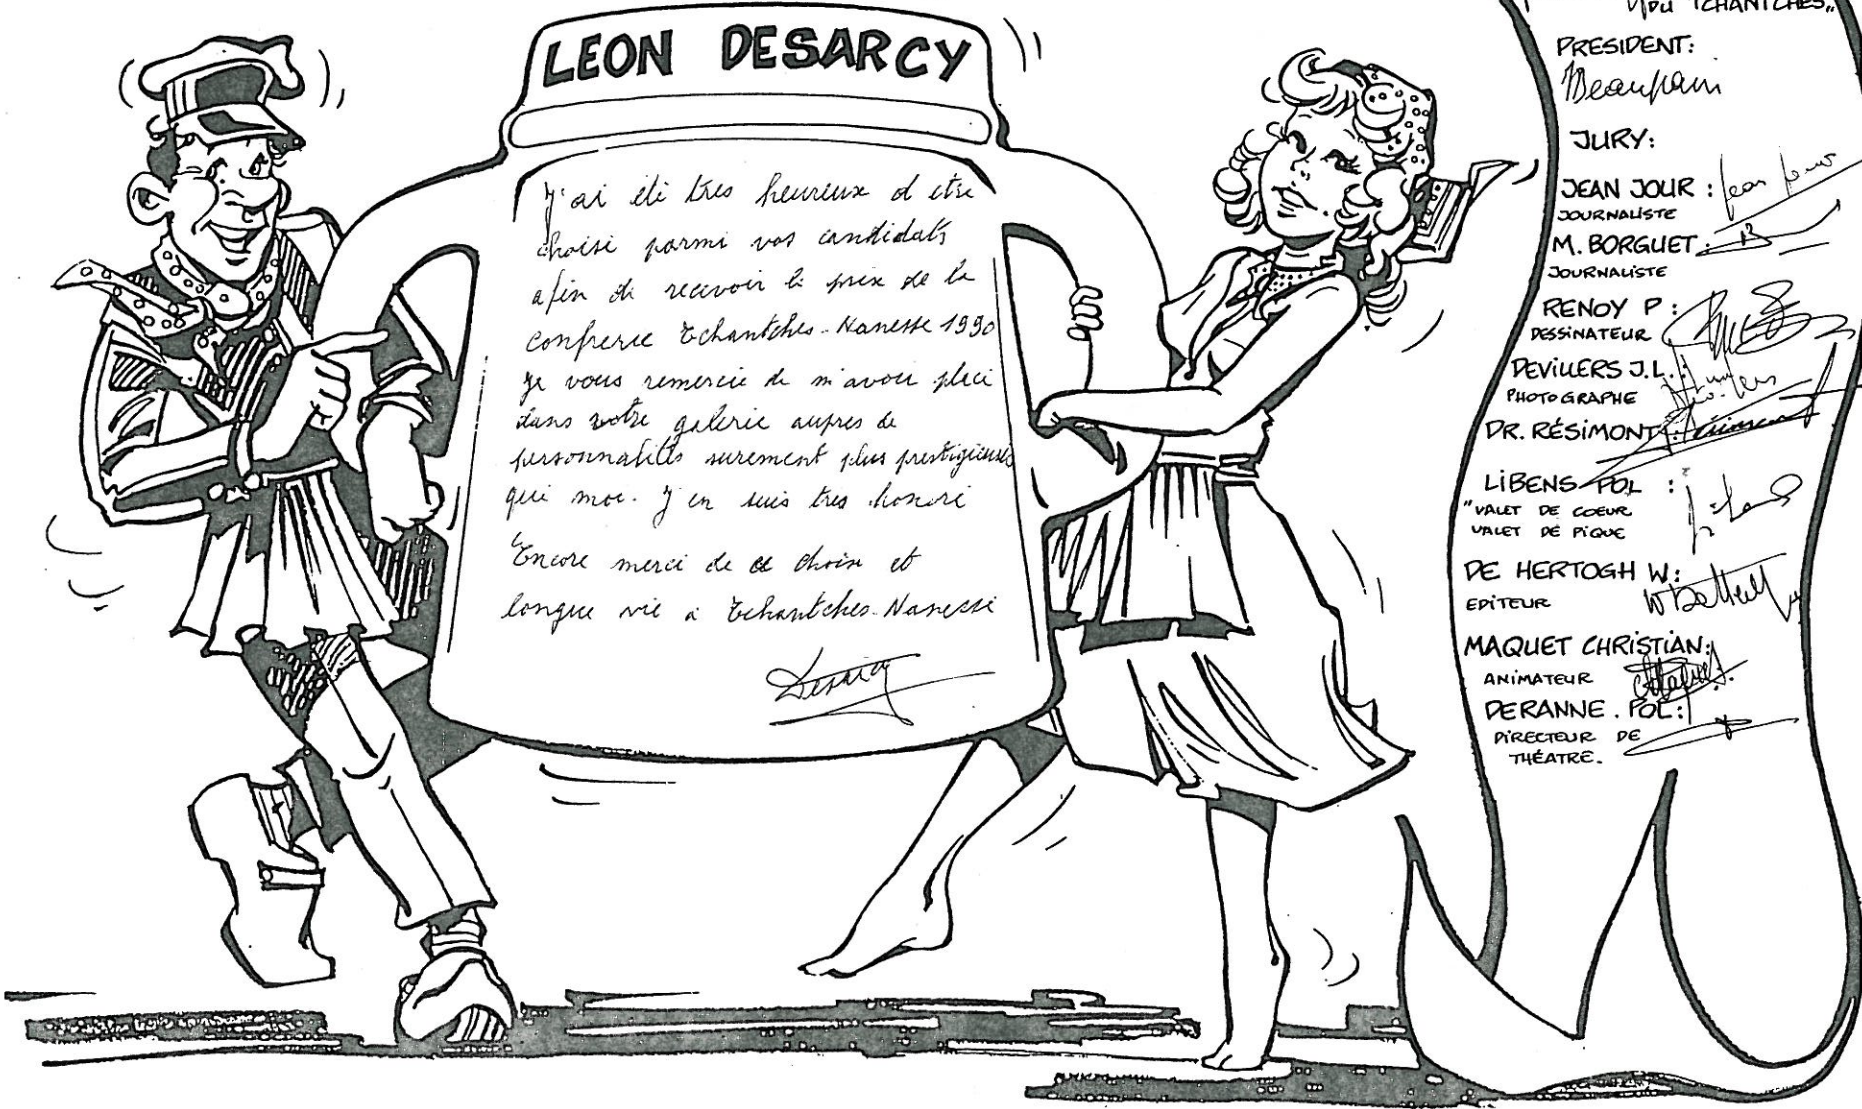 LEON DESARCY
J'ai été tres heureux d etre
choisi parmi vos candidats
afin de recevoir le prix de la
confrerie Tchantches-Nanesse 1990
Je vous remercie de m'avoir placé
dans votre galerie aupres de
personnalités surement plus prestigieuses
que moi. J'en suis tres honoré
Encore merci de ce choix et
longue vie a Tchantches-Nanesse
Desarcy
DU TCHANTCHES"
PRESIDENT:
Beaupain
JURY:
JEAN JOUR : Jean Jour
JOURNALISTE
M. BORGUET :
JOURNALISTE
RENOY P :
DESSINATEUR
DEVILLERS J.L. :
PHOTOGRAPHE
DR. RÉSIMONT :
LIBENS POL :
"VALET DE COEUR
VALET DE PIQUE
DE HERTOGH W:
EDITEUR
MAQUET CHRISTIAN:
ANIMATEUR
DERANNE. POL:
DIRECTEUR DE
THÉATRE.